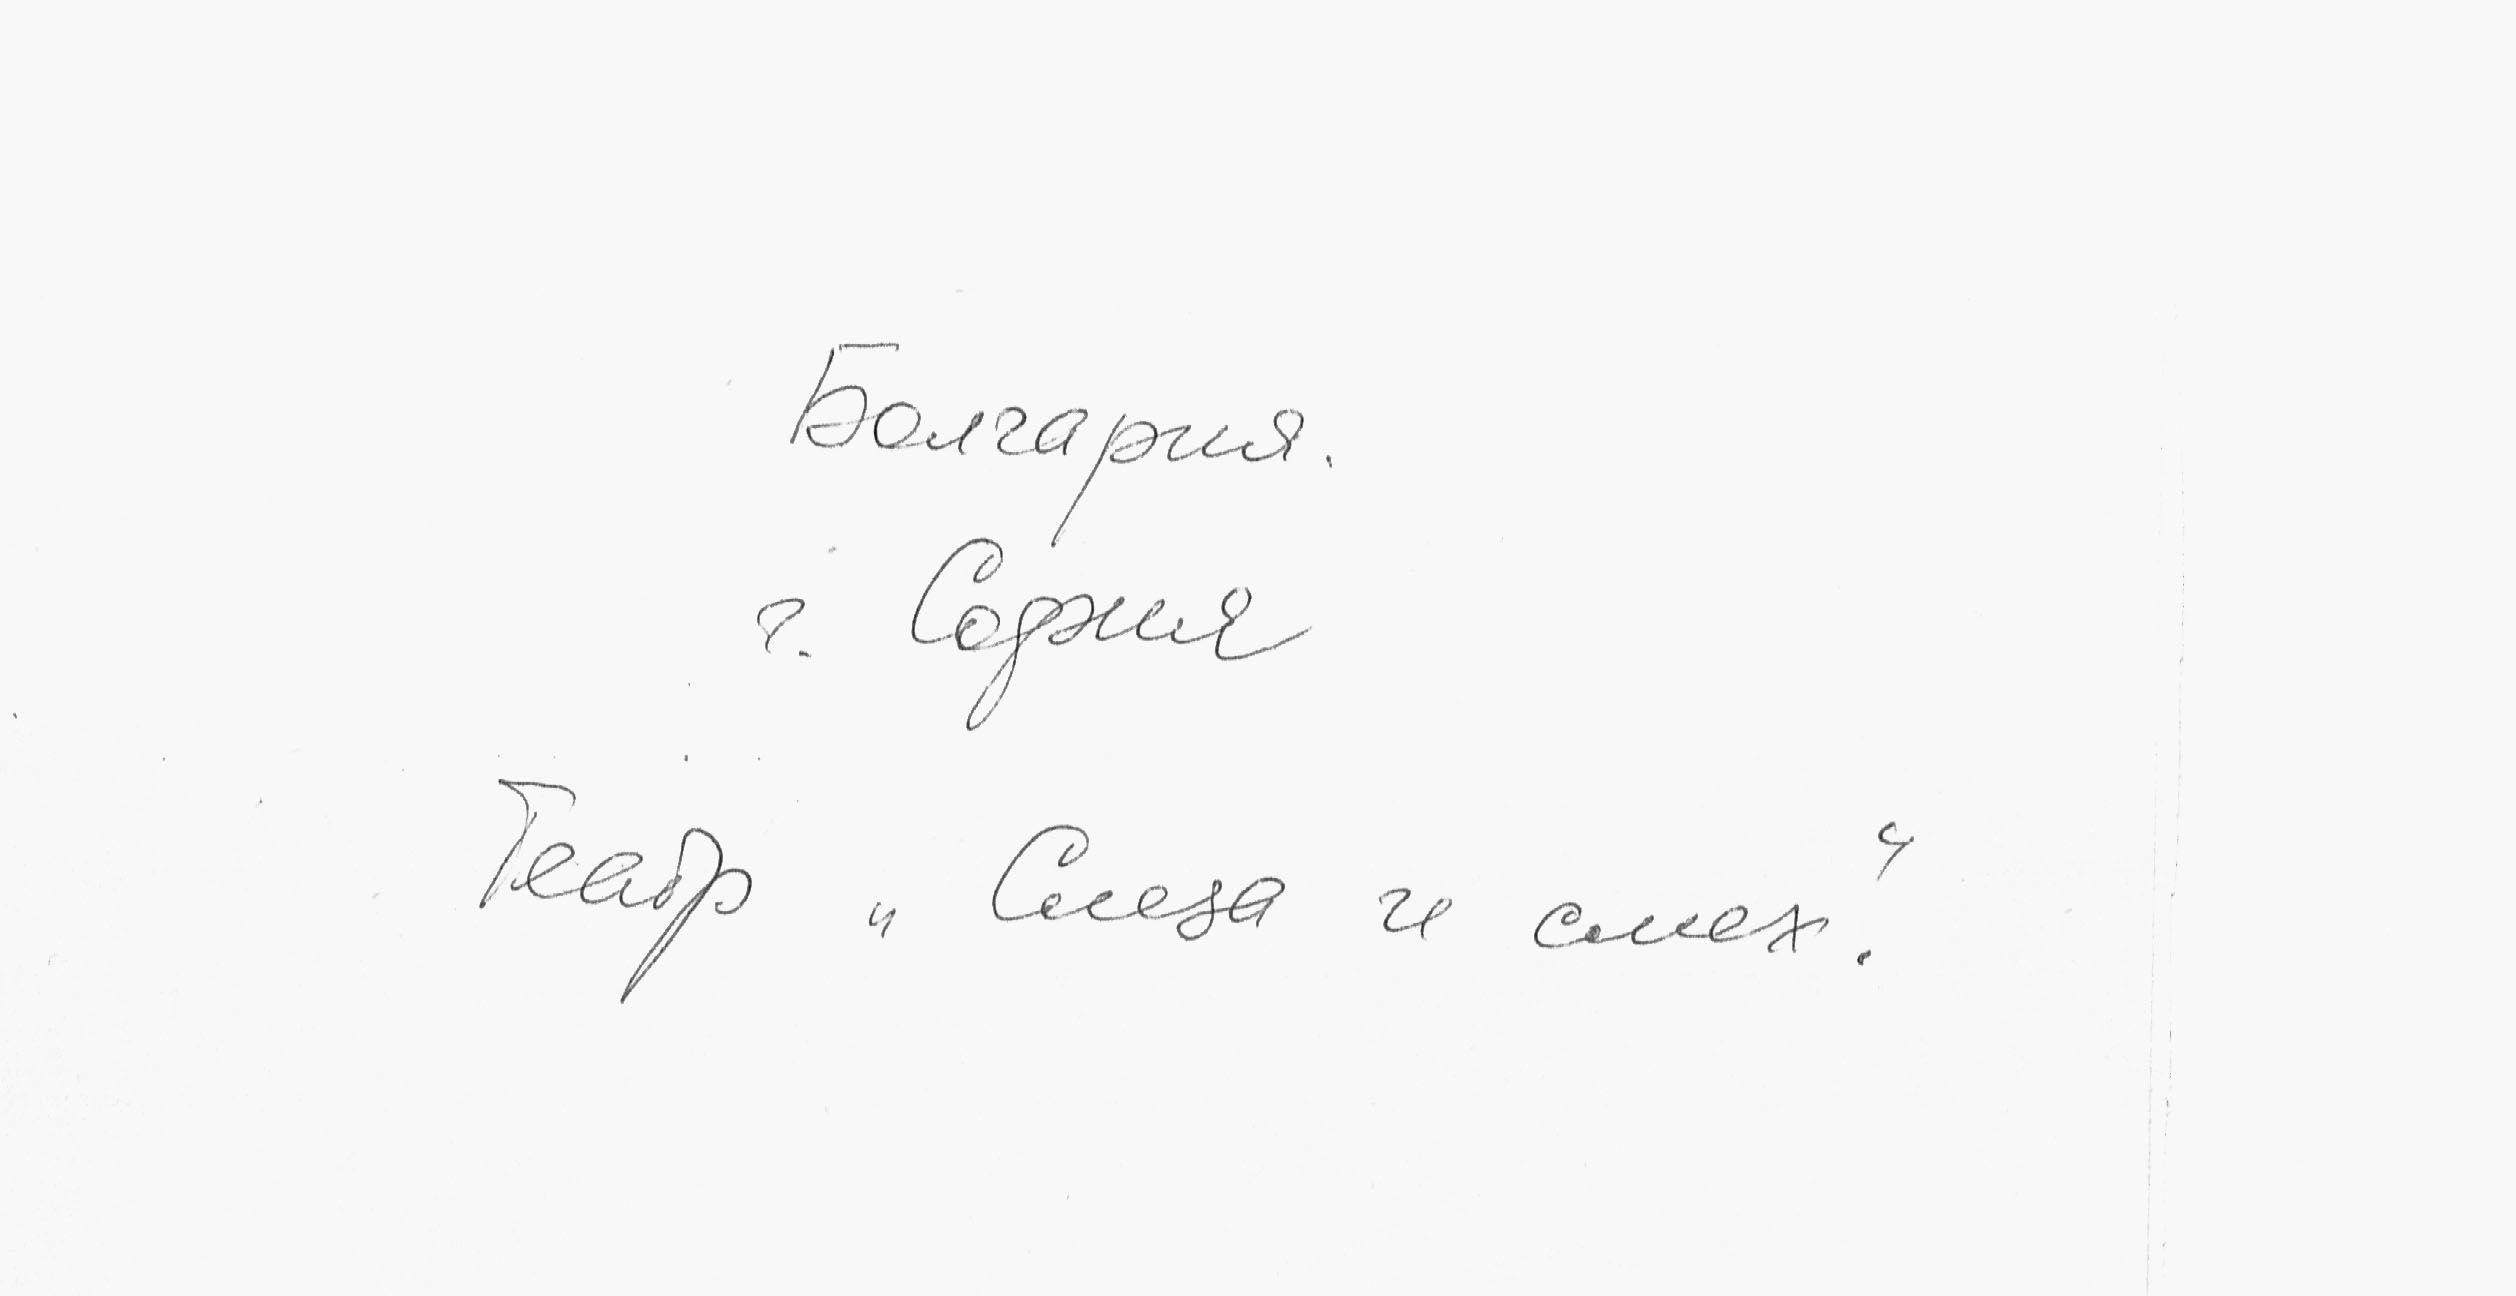 Болгария.
г. София
Театр „Слеза и смех.“